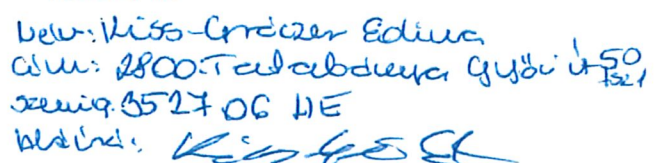 Név: Kiss-Gráczer Edina
Cím: 2800. Tatabánya Győri út 50 fsz 1
szemig. 352706 HE
aláírás: